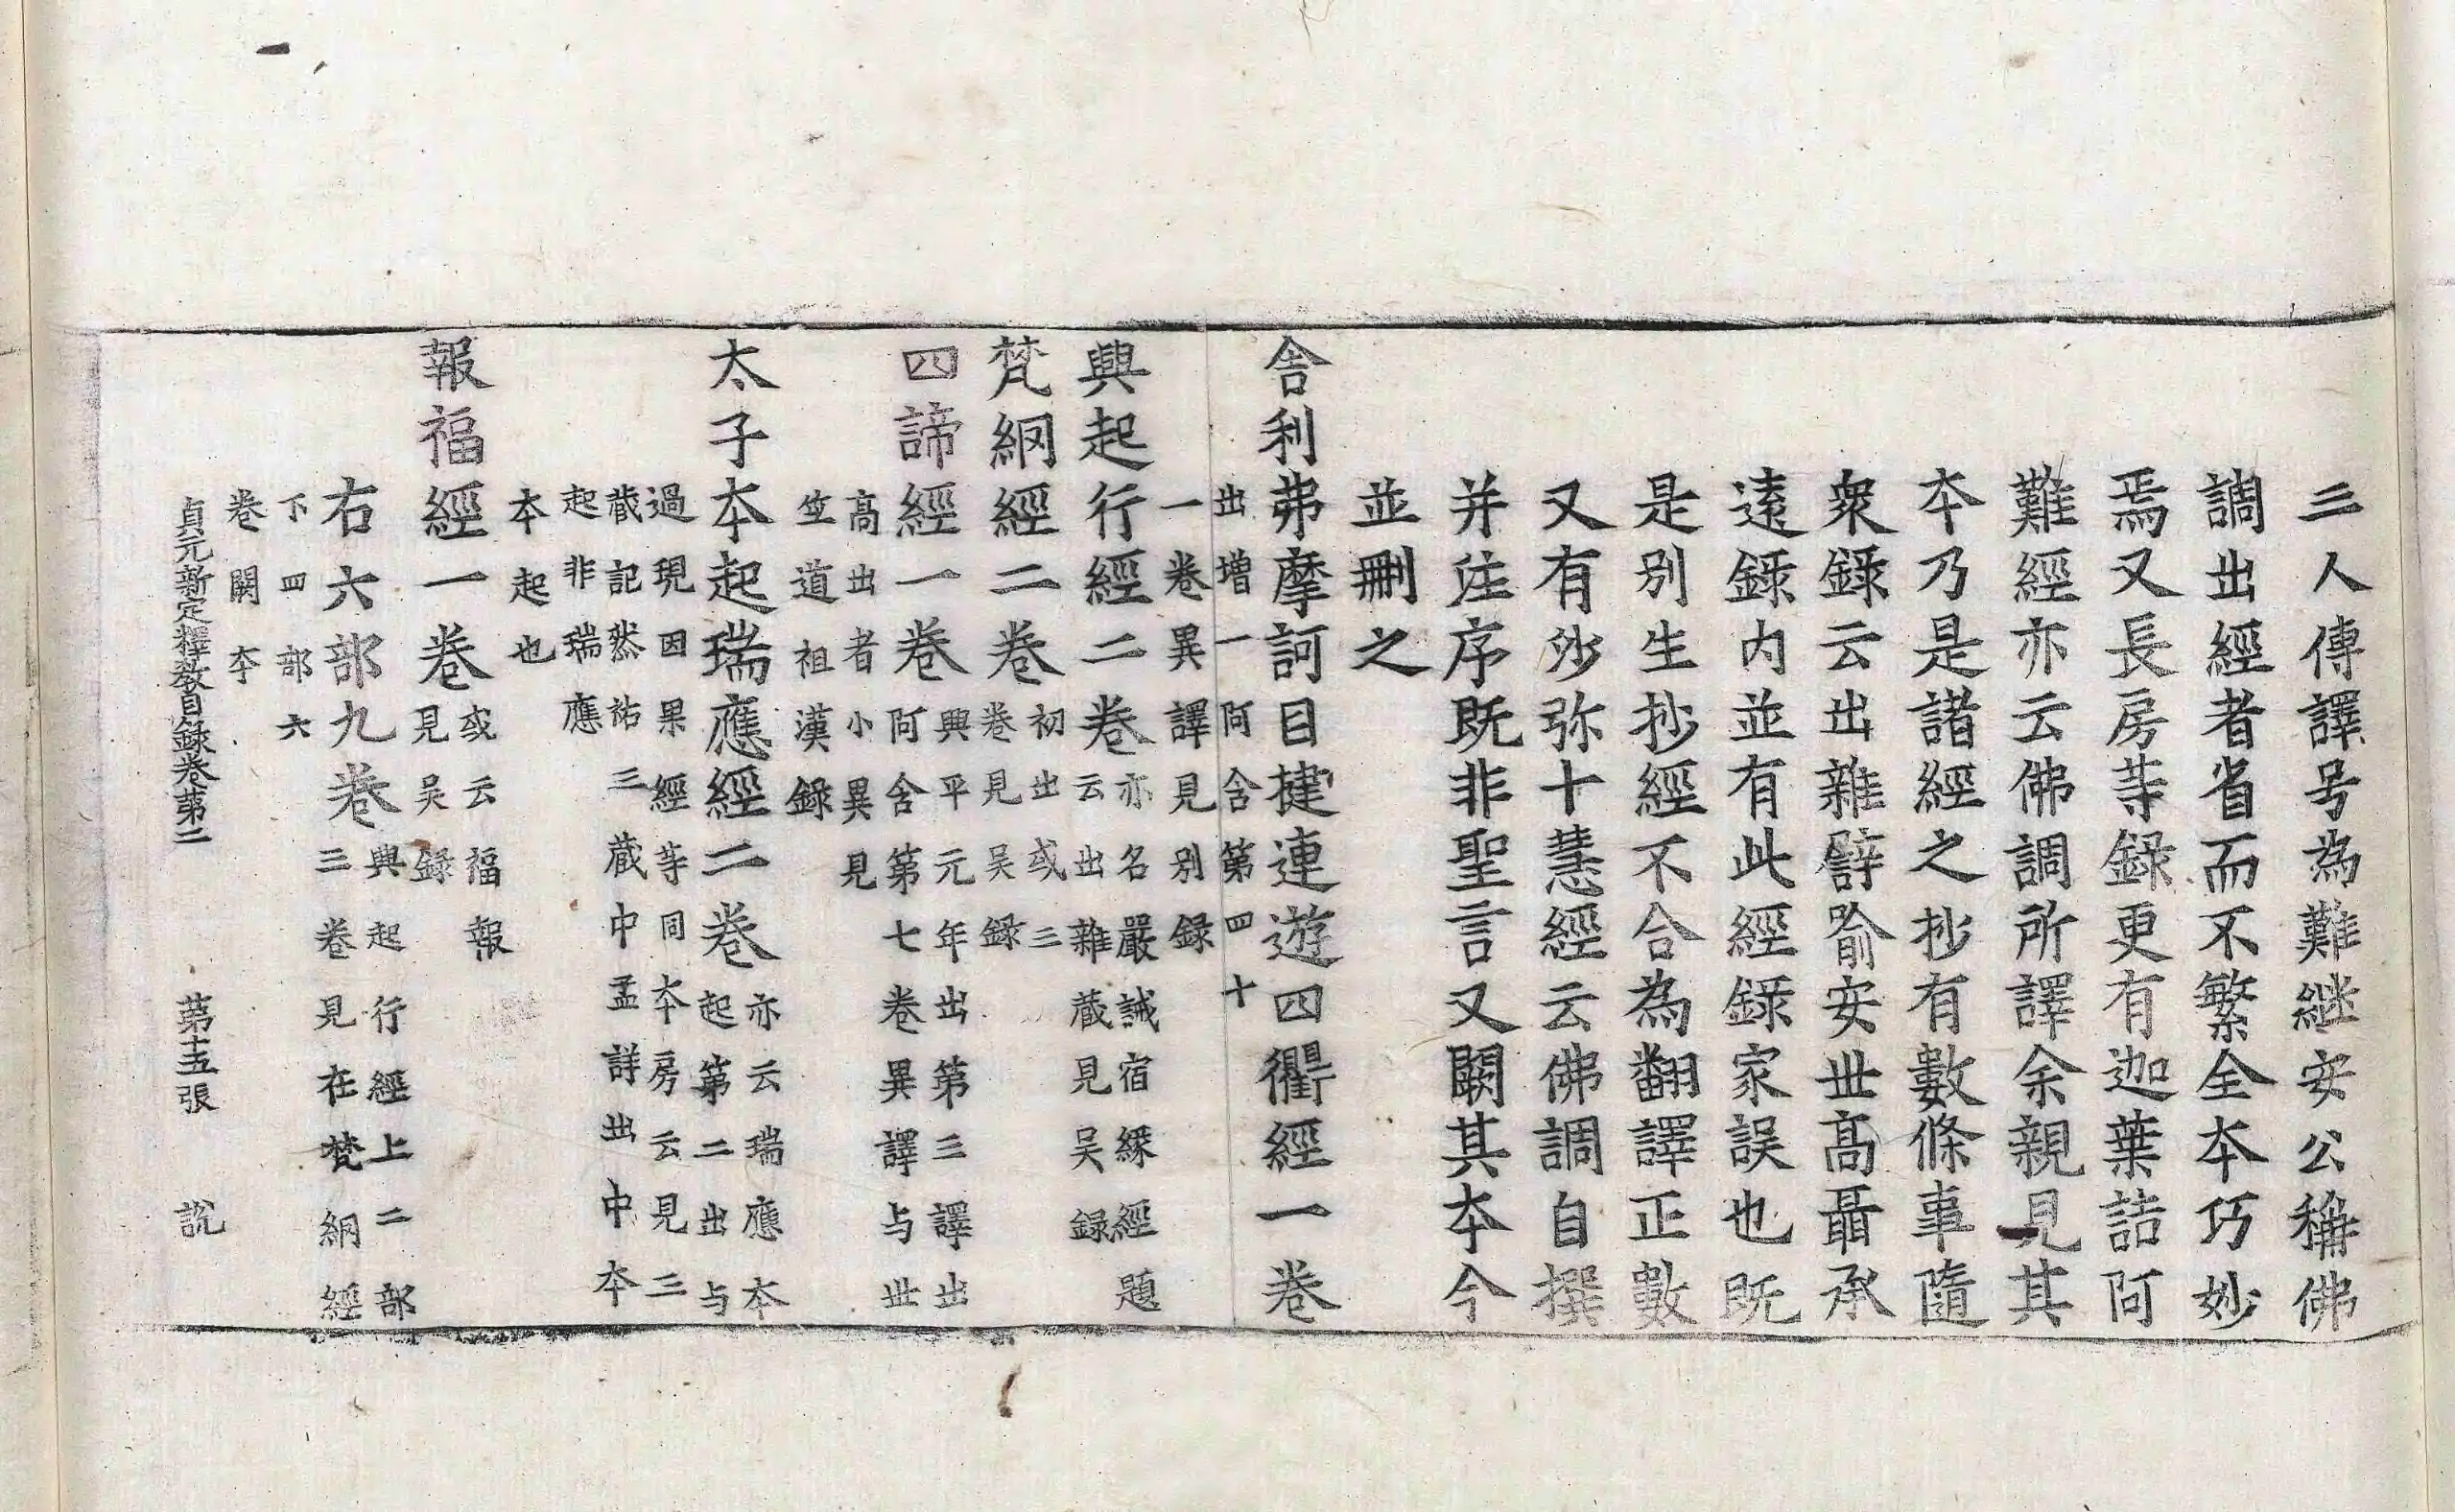 三人傳譯号為難継安公稱佛
調出經者省而不繁全本巧妙
焉又長房等録更有迦葉詰阿
難經亦云佛調所譯余親見其
本乃是諸經之抄有數條事隨
衆録云出雜譬喻安世高聶承
遠録内並有此經録家誤也既
是別生抄經不合為翻譯正數
又有沙弥十慧經云佛調自撰
并注序既非聖言又闕其本今
並刪之
舎利弗摩訶目揵連遊四衢經一卷
出増一阿含第四十
一卷異譯見别録
興起行經二卷
亦名嚴誡宿縁經題
云出雜蔵見吴録
梵網經二卷
初出或三
卷見吴録
四諦經一卷
興平元年出第三譯出
阿含第七卷異譯与世
高出者小異見
竺道祖漢録
太子本起瑞應經二卷
亦云瑞應本
起第二出与
過現因果經等同本房云見三
蔵記然祐三蔵中孟詳出中本
起非瑞應
本起也
報福經一卷
或云福報
見吴録
右六部九卷
興起行經上二部
三卷見在梵網經
下四部六
卷闕本
貞元新定釋教目録卷第二 第十五張 説